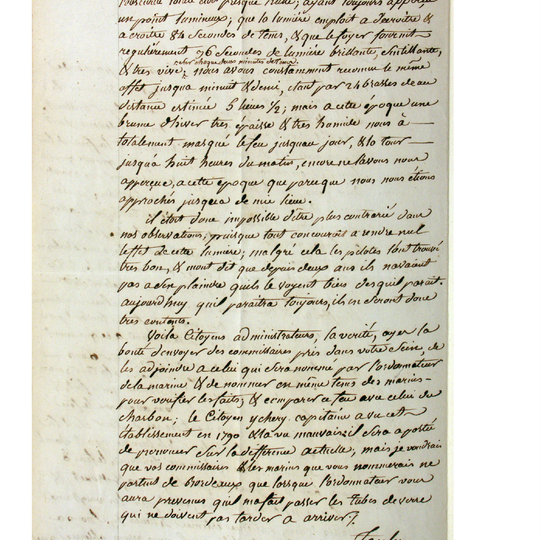 l'obscurité totale etoit presque nulle; ayant toujours apperçu
un point lumineux; que la lumière emploit a s'accroitre &
a croitre 84 secondes de tems, & que le foyer fournit
regulièrement 36 secondes de lumière brillante, sintillante,
cela chaque deux minutes de tems
& tres vive; nous avons constamment reconnu le même
effet jusqua minuit & demi, etant par 24 brasses deau
distance estimée 5 lieues 1/2; mais a cete époque une
brume d'hiver très épaisse & très humide nous à
totalement masqué le feu jusquau jour, & la tour
jusqu'à huit heures du matin, encore ne lavons nous
apperçue, a cette époque que parceque nous nous étions
approchés jusqu'a de mie lieue.
il étoit donc impossible d'etre plus contrarié dans
nos observations, puisque tout concouroit a rendre nul
l'effet de cette lumière; malgré cela les pilotes l'ont trouvé
tres bon, & mont dit que depuis deux ans ils navaient
pas a sen plaindre quils le voyent bien desquil parait.
aujourdhuy quil paraitra toujours, ils en seront donc
tres contents.
Voila Citoyens administrateurs, la verité, ayez la
bonté denvoyer des commissaires pris dans votre sein, de
les adjoindre a celui qui sera nommé par l'ordonnateur
de la marine & de nommer en même tems des marins
pour verifier les faits, & comparer ce feu avec celui de
charbon; le Citoyen ychery capitaine a vu cet
Etablissement en 1790 & la vu mauvais; il sera a portée
de prononcer sur la difference actuelle, mais je voudrais
que vos commissaires & les marins que vous nommerais ne
partent de Bordeaux que lorsque l'ordonnateur vous
aura prevenus quil ma fait passer les tubes de verre
qui ne doivent pas tarder a arriver /.